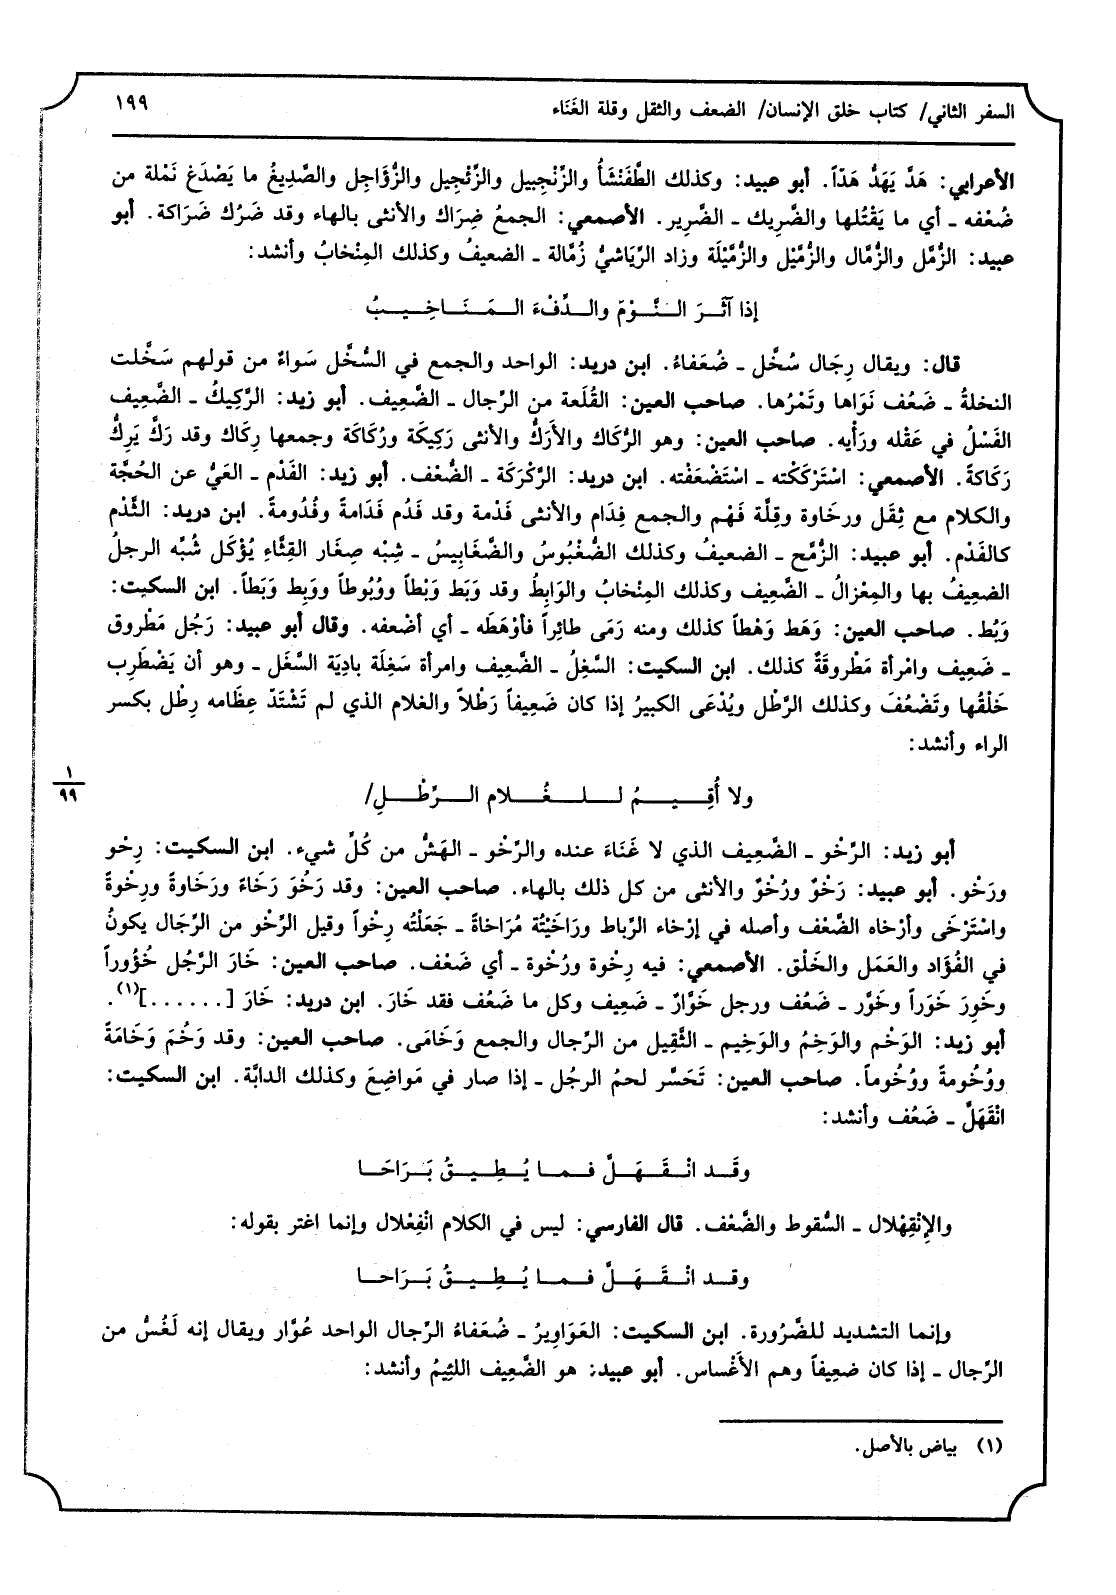 السفر الثاني/ كتاب خلق الإنسان/ الضعف والثقل وقلة الغَنَاء
١٩٩
الأعرابي: هَدَّ يَهَدُّ هَدّاً. أبو عبيد: وكذلك الطَّفَنْشَأُ والزَّنْجِبيل والزَّنْجِيل والزُّؤَاجِل والصَّدِيغُ ما يَصْدَغ نَمْلة من
ضُعْفه ـ أي ما يَقْتُلها والضَّرِيك ـ الضَّرِير. الأصمعي: الجمعُ ضِرَاك والأنثى بالهاء وقد ضَرُك ضَرَاكة. أبو
عبيد: الزُّمَّل والزُّمَّال والزُّمَّيْل والزُّمَّيْلَة وزاد الرِّيَاشيُّ زُمَّالة ـ الضعيفُ وكذلك المِنْخابُ وأنشد:
إذا آثَـرَ الـنَّـوْمَ والـدِّفْءَ الـمَـنَـاخِـيـبُ
قال: ويقال رِجَال سُخَّل ـ ضُعَفاءُ. ابن دريد: الواحد والجمع في السُّخَّل سَواءٌ من قولهم سَخَّلت
النخلةُ ـ ضَعُف نَوَاها وتَمْرُها. صاحب العين: القُلَعة من الرِّجال ـ الضَّعِيف. أبو زيد: الرَّكِيكُ ـ الضَّعِيف
الفَسْلُ في عَقْله ورَأْيه. صاحب العين: وهو الرُّكَاك والأَرَكُّ والأنثى رَكِيكَة ورُكَاكَة وجمعها رِكَاك وقد رَكَّ يَرِكُّ
رَكَاكةً. الأصمعي: اسْتَرْكَكْته ـ اسْتَضْعَفْته. ابن دريد: الرَّكْرَكَة ـ الضُّعْف. أبو زيد: الفَدْم ـ العَيُّ عن الحُجَّة
والكلام مع ثِقَل ورخَاوة وقِلَّة فَهْم والجمع فِدَام والأنثى فَدْمة وقد فَدُم فَدَامةً وفُدُومةً. ابن دريد: الثَّدْم
كالفَدْم. أبو عبيد: الزُّمَّح ـ الضعيفُ وكذلك الضُّغْبُوسُ والضَّغَابِيسُ ـ شِبْه صِغَار القِثَّاءِ يُؤْكَل شُبِّه الرجلُ
الضعِيفُ بها والمِعْزالُ ـ الضَّعِيف وكذلك المِنْخابُ والوَابِطُ وقد وَبَط وَبْطاً ووُبُوطاً ووَبِط وَبَطاً. ابن السكيت:
وَبُط. صاحب العين: وَهَط وَهْطاً كذلك ومنه رَمَى طائِراً فأَوْهَطَه ـ أي أضْعفه. وقال أبو عبيد: رَجُل مَطْروق
ـ ضَعِيف وامْرأة مَطْروقَةٌ كذلك. ابن السكيت: السَّغِلُ ـ الضَّعِيف وامرأة سَغِلَة بادِيَة السَّغَل ـ وهو أن يَضْطَرِب
خَلْقُها وتَضْعُفَ وكذلك الرَّطْل ويُدْعَى الكبيرُ إذا كان ضَعِيفاً رَطْلاً والغلام الذي لم تَشْتَدّ عِظَامه رِطْل بكسر
الراء وأنشد:
ولا أُقِـيـمُ لـلـغُـلام الـرِّطْـلِ/
١
٩٩
أبو زيد: الرَّخْو ـ الضَّعِيف الذي لا غَنَاءَ عنده والرَّخْو ـ الهَشُّ من كُلِّ شيء. ابن السكيت: رِخْو
ورَخْو. أبو عبيد: رَخْوٌ ورُخْوٌ والأنثى من كل ذلك بالهاء. صاحب العين: وقد رَخُوَ رَخَاءً ورَخَاوةً ورِخْوةً
واسْتَرْخَى وأرْخاه الضَّعْف وأصله في إرْخاء الرِّباط ورَاخَيْتُه مُرَاخاةً ـ جَعَلْته رِخْواً وقيل الرِّخْو من الرِّجال يكونُ
في الفُؤَاد والعَمَل والخَلْق. الأصمعي: فيه رِخْوة ورُخْوة ـ أي ضَعْف. صاحب العين: خَارَ الرَّجُل خُؤُوراً
وخَوِرَ خَوَراً وخَوَّر ـ ضَعُف ورجل خَوَّارٌ ـ ضَعِيف وكل ما ضَعُف فقد خَارَ. ابن دريد: خَارَ [......](١).
أبو زيد: الوَخْم والوَخِمُ والوَخِيم ـ الثَّقِيل من الرِّجال والجمع وَخَامَى. صاحب العين: وقد وَخُمَ وَخَامَةً
ووُخُومةً ووُخُوماً. صاحب العين: تَحَسَّر لحمُ الرجُل ـ إذا صار في مَواضِعَ وكذلك الدابَّة. ابن السكيت:
انْقَهَلَّ ـ ضَعُف وأنشد:
وقَـد انْـقَـهَـلَّ فـمـا يُـطِـيـقُ بَـرَاحَـا
والإنْقِهْلال ـ السُّقوط والضَّعْف. قال الفارسي: ليس في الكلام انْفِعْلال وإنما اغتر بقوله:
وقـد انْـقَـهَـلَّ فـمـا يُـطِـيـقُ بَـرَاحـا
وإنما التشديد للضَّرُورة. ابن السكيت: العَوَاوِيرُ ـ ضُعَفاءُ الرِّجال الواحد عُوَّار ويقال إنه لَغُسٌّ من
الرِّجال ـ إذا كان ضعِيفاً وهم الأَغْساس. أبو عبيد: هو الضَّعِيف اللئِيمُ وأنشد:
(١) بياض بالأصل.